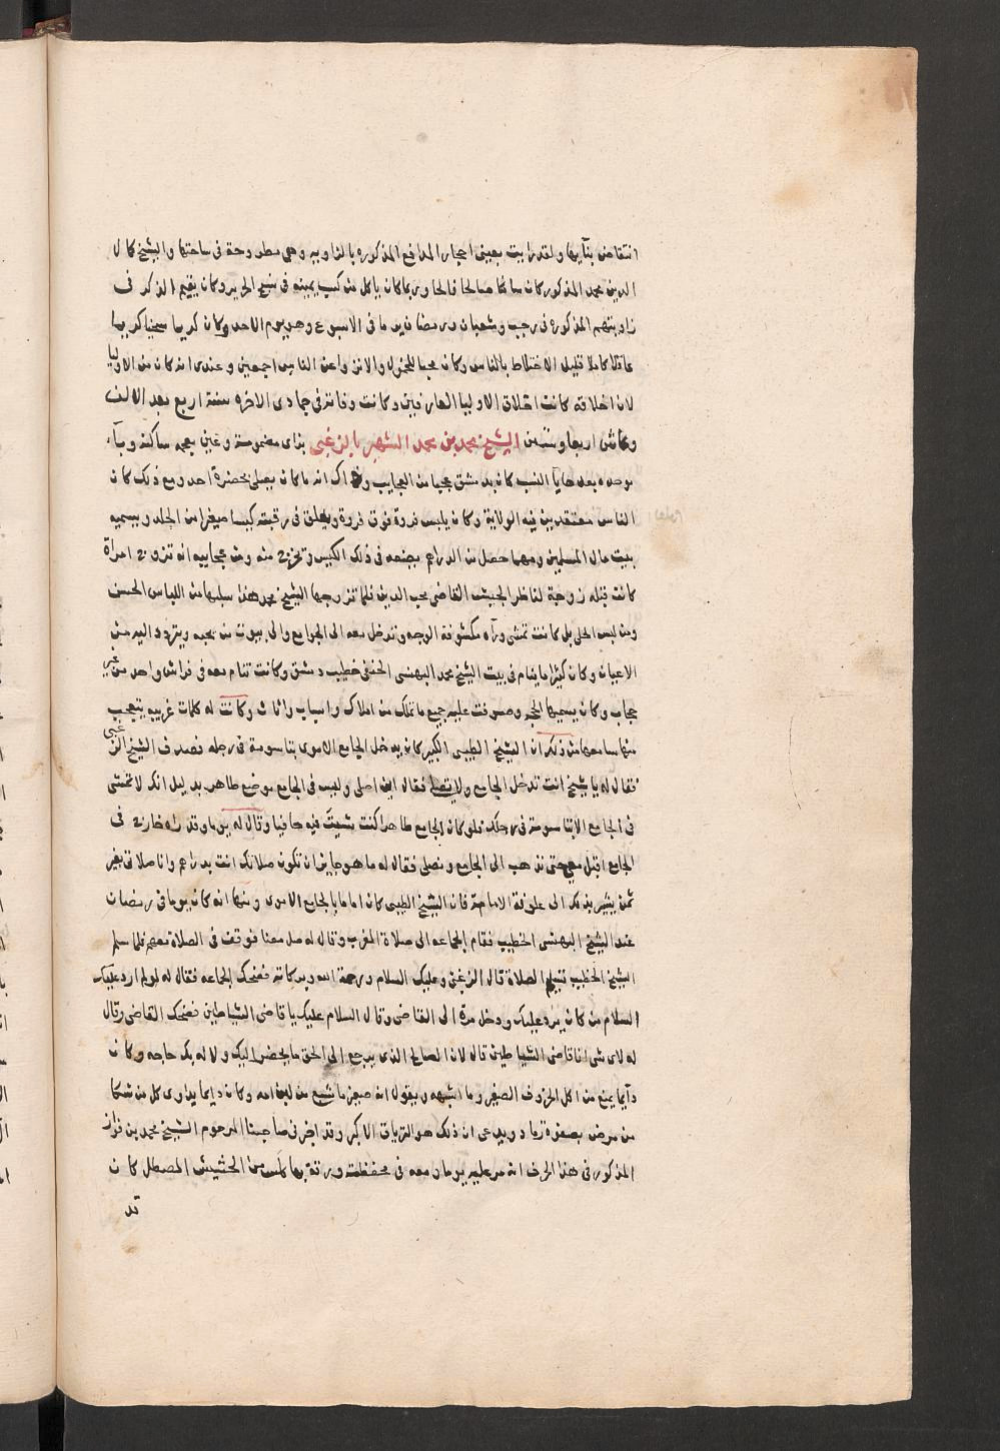 انتقاض بنآيها ولقد رايت بعيني احجار المدافع المذكوره بالزاويه وهي مطروحة في ساحتها والشيخ كمال
الدين محمد المذكور كان ساكنا صالحا فالحا وربما كان ياكل من كسب يمينه في نسج الحرير وكان يقيم الذكر في
زاويتهم المذكورة في رجب وشعبان ورمضان يوما في الاسبوع وهو يوم الاحد وكان كريما سخيا كريما
عاقلا كاملا قليل الاختلاط بالناس وكان محبا للخمول والانزواء عن الناس اجمعين وعندي انه كان من الاوليا
لان اخلاقه كانت اخلاق الاوليا العارفين وكانت وفاته في جمادى الاخره سنة اربع بعد الالف
وعاش اربعا وستين الشيخ محمد بن محمد الشهير بالزغبي بزاى مضمومة وغين معجمه ساكنة وبآء
موحده بعدها يآ النسب كان بدمشق عجبا من العجايب وذاك انه ما كان يصلي بحضرة احد ومع ذلك كان
الناس معتقدين فيه الولاية وكان يلبس فروة فوق فروة ويعلق في رقبته كيسا صغيرا من الجلد ويسميه
بيت مال المسلمين ومهما حصل من الدراهم يضعه في ذلك الكيس وتخرج منه ومن عجايبه انه تزوج امراة
كانت قبله زوجة لناظر الجيش القاضي محب الدين فلما تزوجها الشيخ محمد هذا سلبها من اللباس الحسن
ومن لبس الحلي بل كانت تمشي ورآه مكشوفة الوجه وتدخل معه الى الجوامع والى بيوت من يحبه ويتردد اليه من
الاعيان وكان كثيرا ما ينام في بيت الشيخ محمد البهنسي الحنفي خطيب دمشق وكانت تنام معه في فراش واحد من غير
حجاب وكان يسميها الحجه وصرفت عليه جميع ما تملك من املاك واسباب واثاث وكانت له كلمات غريبه يتعجب
منها سامعها من ذلك ان الشيخ الطيبي الكبير كان يدخل الجامع الاموي بتاسومة في رجله فصدف الشيخ الزغبي
فقال له يا شيخ انت تدخل الجامع ولا تصلي فقال اين اصلي وليس في الجامع موضع طاهر بدليل انك لا تمشي
في الجامع الا بتاسومة في رجلك فلو كان الجامع طاهرا كنت مشيت فيه حافيا وقال له يوما وقد راه خارج في
الجامع اقبل معي حتى نذهب الى الجامع ونصلي فقال له ما هو جايز ان تكون صلاتك انت بدراهم وانا صلاتي بغير
ثمن يشير بذلك الى علوفة الامامة فان الشيخ الطيبي كان اماما بالجامع الاموي ومنها انه كان يوما في رمضان
عند الشيخ البهنسي الخطيب فقام الجماعه الى صلاة المغرب وقال له صل معنا فوقف في الصلاة معهم فلما سلم
الشيخ الخطيب تسليم الصلاة قال الزغبي وعليك السلام ورحمة الله وبركاته فضحك الجماعه فقال له لو لم ارد عليك
السلام من كان يرد عليك ودخل مرة الى القاضي وقال السلام عليك يا قاضي الشياطين فضحك القاضي وقال
له لاي شي انا قاضي الشياطين قال لان الصالح الذي يرجع الى الحق ما يحضر اليك ولا له بك حاجه وكان
دآيما يمنع من اكل الخروف الصغير وما اشبهه ويقول انه صغير ما شبع من لبن امه وكان دايما يداوي كل من شكا
من مرض بصفوة رماد ويدعي ان ذلك هو الترياق الاكبر وقد اخبرني صاحبنا المرحوم الشيخ محمد بن فواز
المذكور في هذا الحرف انه مر عليه يوما ومعه في محفظته ورقة بها كلس من الحشيش المصطل كان
قد